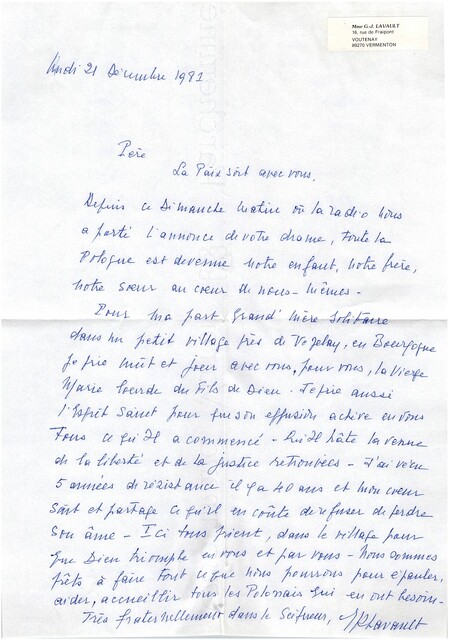 Mme G.-J. LAVAULT
16, rue de Fraipont
VOUTENAY
89270 VERMENTON
Lundi 21 Décembre 1981
Père
La Paix soit avec vous.
Depuis ce Dimanche matin où la radio nous
a porté l'annonce de votre drame, toute la
Pologne est devenue notre enfant, notre frère,
notre sœur au cœur de nous-mêmes -
Pour ma part, Grand'Mère solitaire
dans un petit village près de Vezelay, en Bourgogne
je prie nuit et jour avec vous, pour vous, la Vierge
Marie lourde du Fils de Dieu - Je prie aussi
l'Esprit Saint pour que son effusion achève en vous
Tous ce qu'Il a commencé - Qu'Il hâte la venue
de la liberté et de la justice retrouvées - J'ai vécu
5 années de résistance il y a 40 ans et mon cœur
sait et partage ce qu'il en coûte de refuser de perdre
son âme - Ici tous prient, dans le village pour
que Dieu triomphe en vous et par vous - Nous sommes
prêts à faire tout ce que nous pourrons pour épauler,
aider, accueillir tous les Polonais qui en ont besoin -
Très fraternellement dans le Seigneur, GJLavault